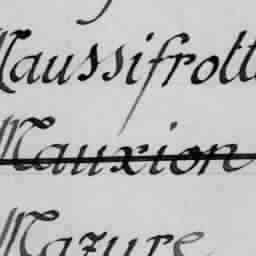 Maussifrott
Mauxion
Mazure